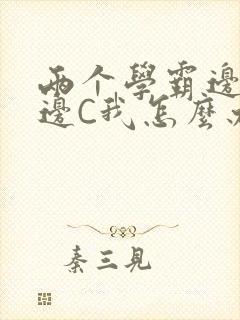 两个學霸邊
邊C我怎麼
秦三見